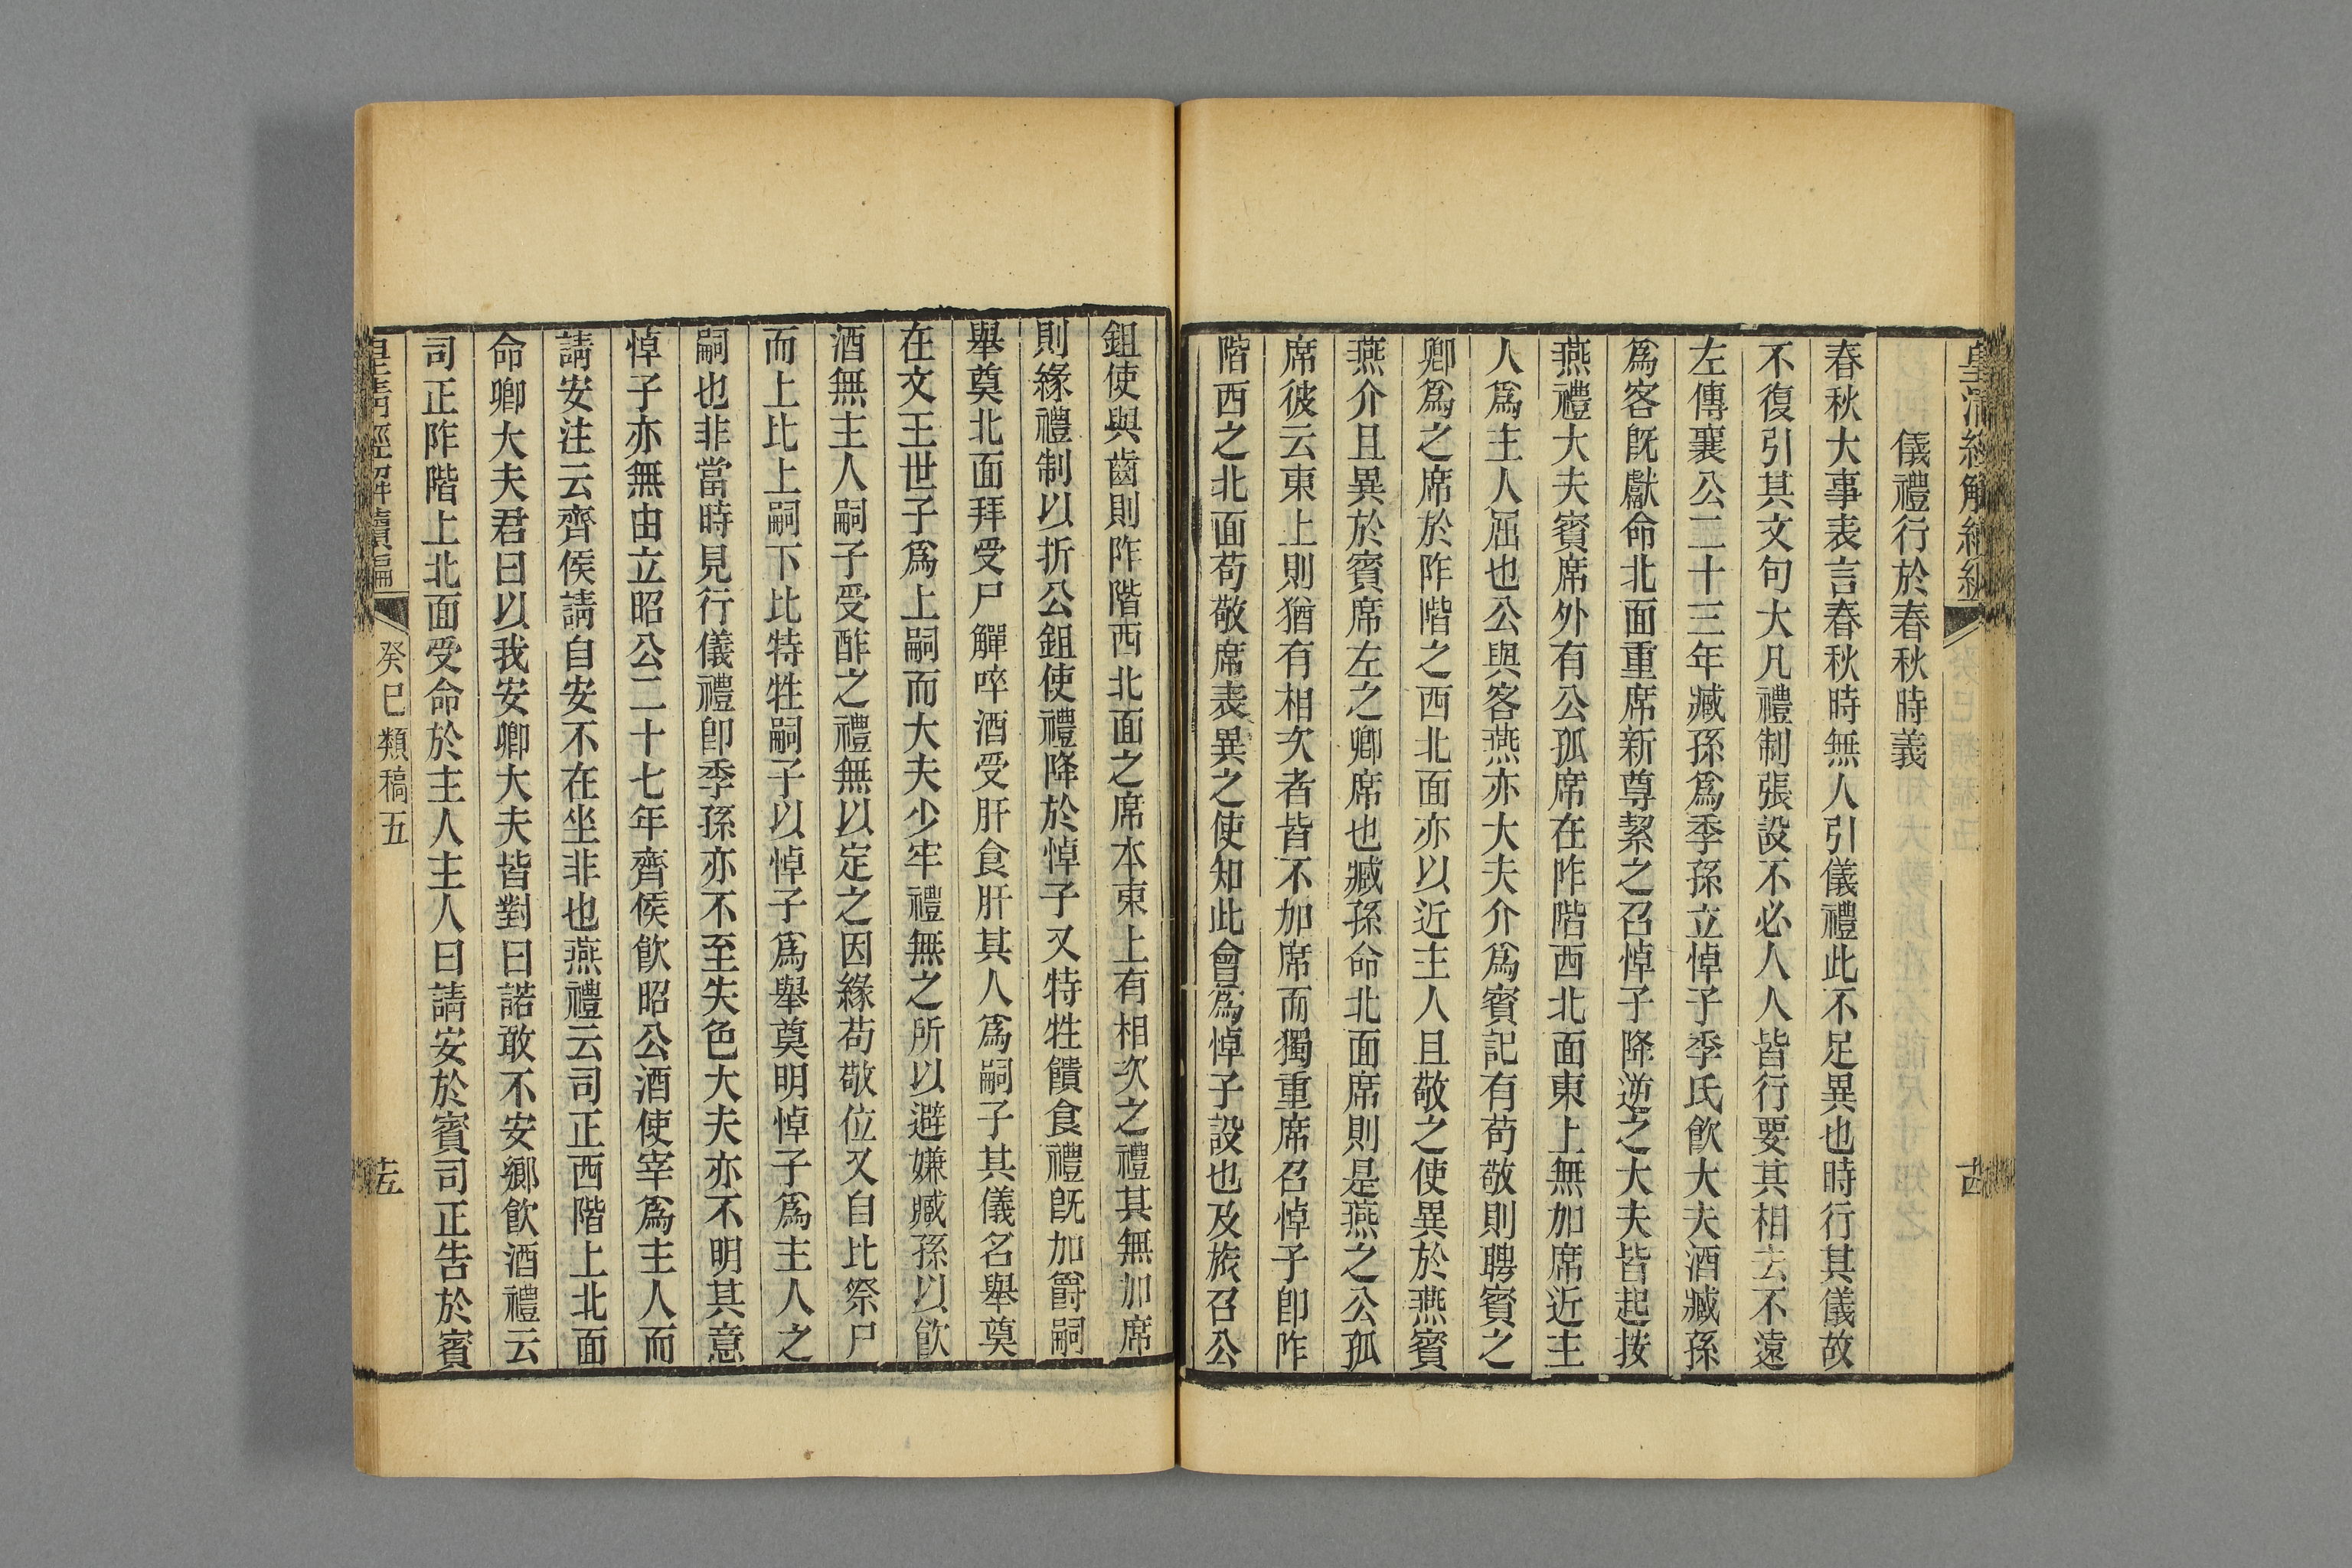 皇清經解續編
十四
儀禮行於春秋時義
春秋大事表言春秋時無人引儀禮此不足異也時行其儀故
不復引其文句大凡禮制張設不必人人皆行要其相去不遠
左傳襄公二十三年臧孫爲季孫立悼子季氏飮大夫酒臧孫
爲客旣獻命北面重席新尊絜之召悼子降逆之大夫皆起按
燕禮大夫賓席外有公孤席在阼階西北面東上無加席近主
人爲主人屈也公與客燕亦大夫介爲賓記有苟敬則聘賓之
卿爲之席於阼階之西北面亦以近主人且敬之使異於燕賓
燕介且異於賓席左之卿席也臧孫命北面席則是燕之公孤
席彼云東上則猶有相次者皆不加席而獨重席召悼子卽阼
階西之北面苟敬席表異之使知此會爲悼子設也及旅召公
鉏使與齒則阼階西北面之席本東上有相次之禮其無加席
則緣禮制以折公鉏使禮降於悼子又特牲饋食禮旣加爵嗣
舉奠北面拜受尸觶啐酒受肝食肝其人爲嗣子其儀名舉奠
在文王世子爲上嗣而大夫少牢禮無之所以避嫌臧孫以飮
酒無主人嗣子受酢之禮無以定之因緣苟敬位又自比祭尸
而上比上嗣下比特牲嗣子以悼子爲舉奠明悼子爲主人之
嗣也非當時見行儀禮卽季孫亦不至失色大夫亦不明其意
悼子亦無由立昭公二十七年齊侯飮昭公酒使宰爲主人而
請安注云齊侯請自安不在坐非也燕禮云司正西階上北面
命卿大夫君曰以我安卿大夫皆對曰諾敢不安鄉飮酒禮云
司正阼階上北面受命於主人主人曰請安於賓司正告於賓
皇清經解續編
癸巳類稿五
十五